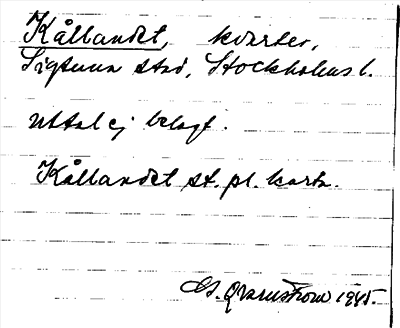 Kållandet, kvarter,
Sigtuna stad, Stockholms l.
Uttal ej belagt.
Kållandet st. pl. karta.
G. Qvarnström 1945.